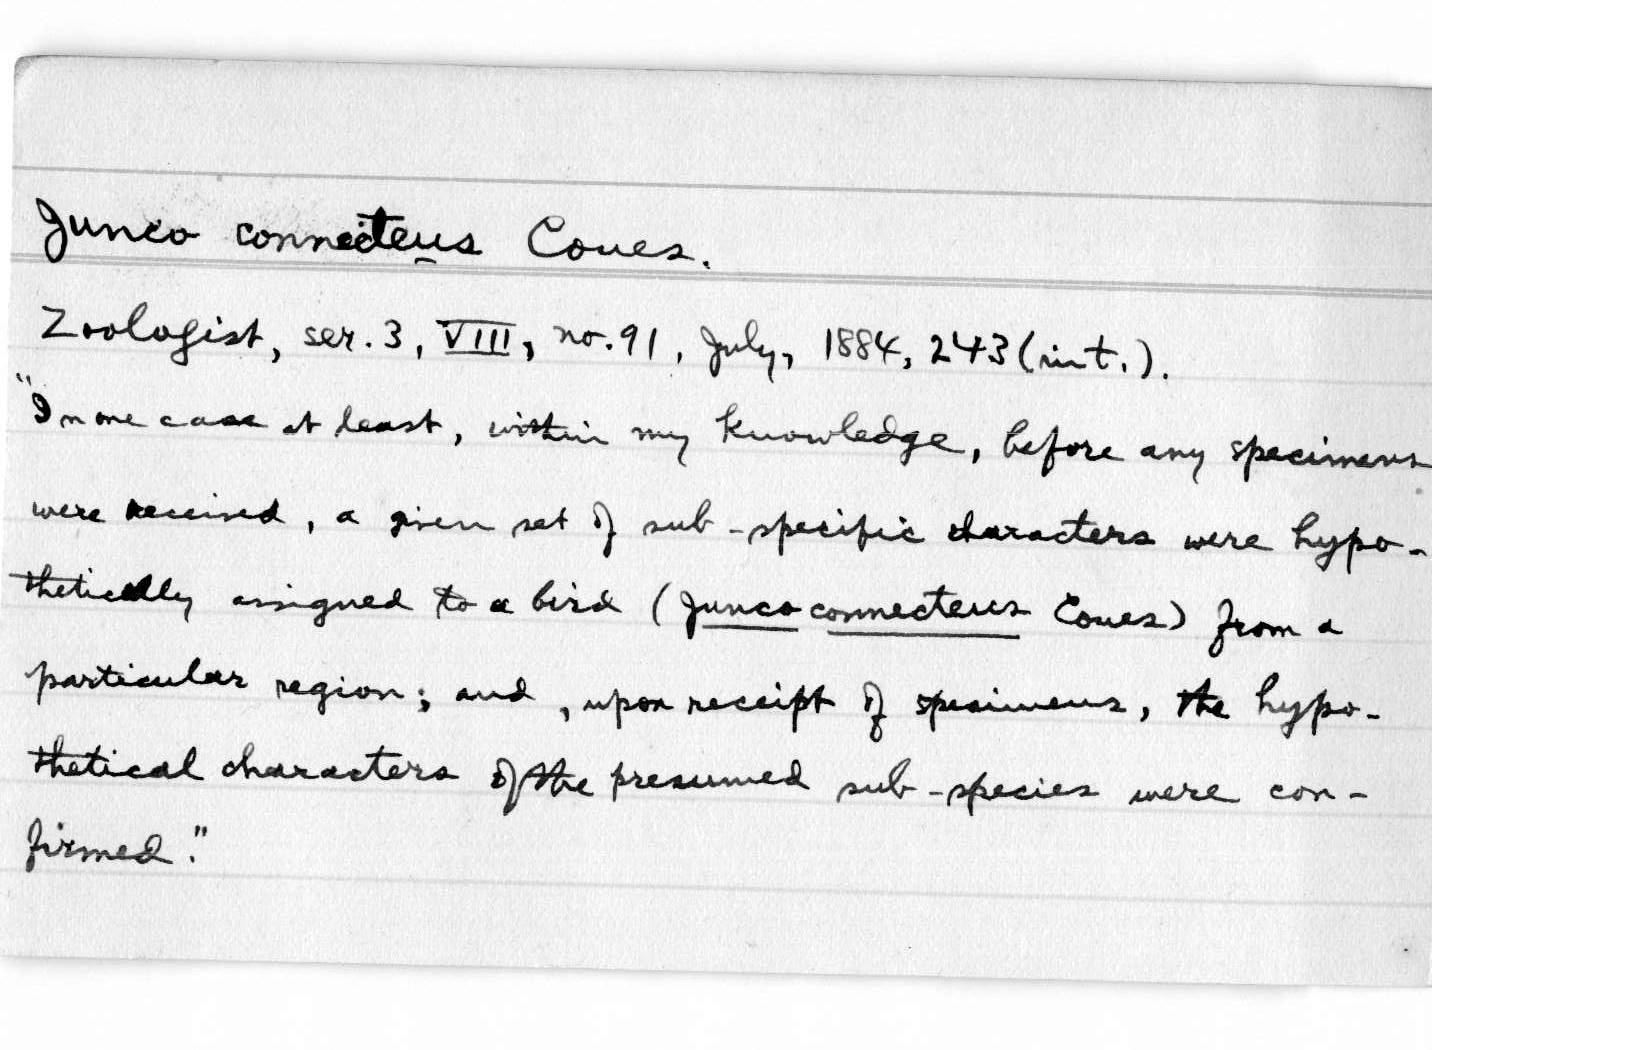 Junco connecteus Coues.
Zoologist, ser. 3, VIII, no. 91, July, 1884, 243 (int.).
"In one case at least, within my knowledge, before any specimens
were received, a given set of sub-specific characters were hypo-
thetically assigned to a bird (Junco connecteus Coues) from a
particular region; and, upon receipt of specimens, the hypo-
thetical characters of the presumed sub-species were con-
firmed."